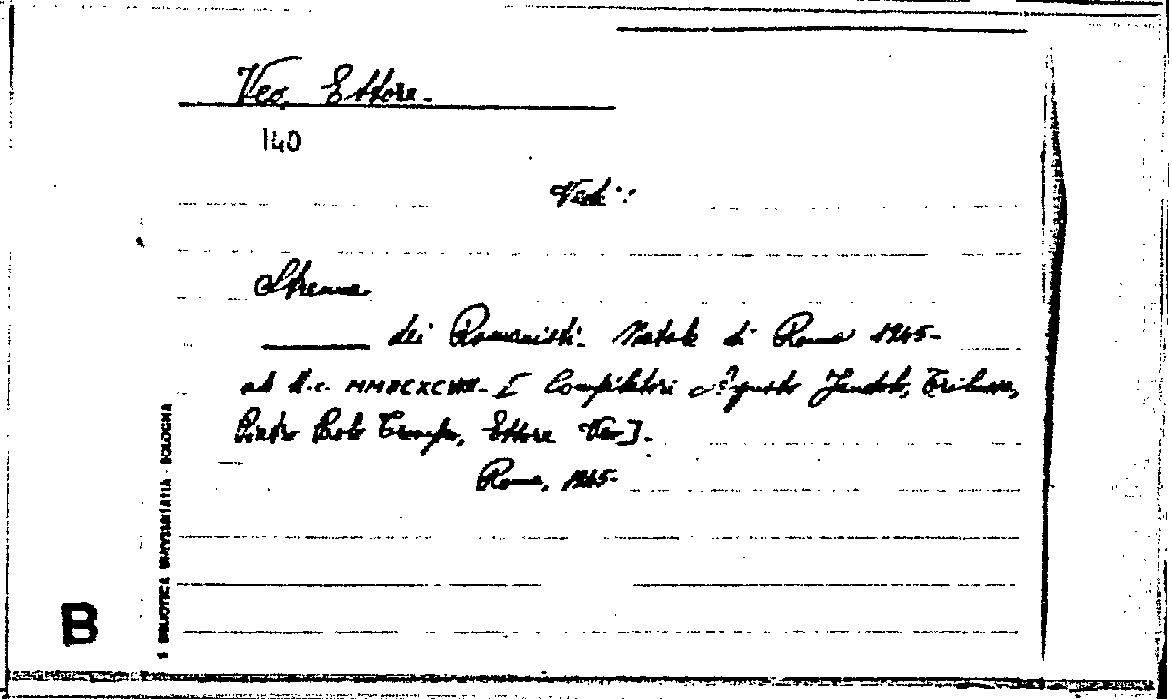 Veo, Ettore.
140
Vedi:
Strenna
dei Romanisti. Natale di Roma 1945-
ab U.c. [Compilatori Augusto Jandolo, Trilussa,
Pietro Paolo Trompeo, Ettore Veo].
Roma, 1945-
1 BIBLIOTECA UNIVERSITARIA - BOLOGNA
B